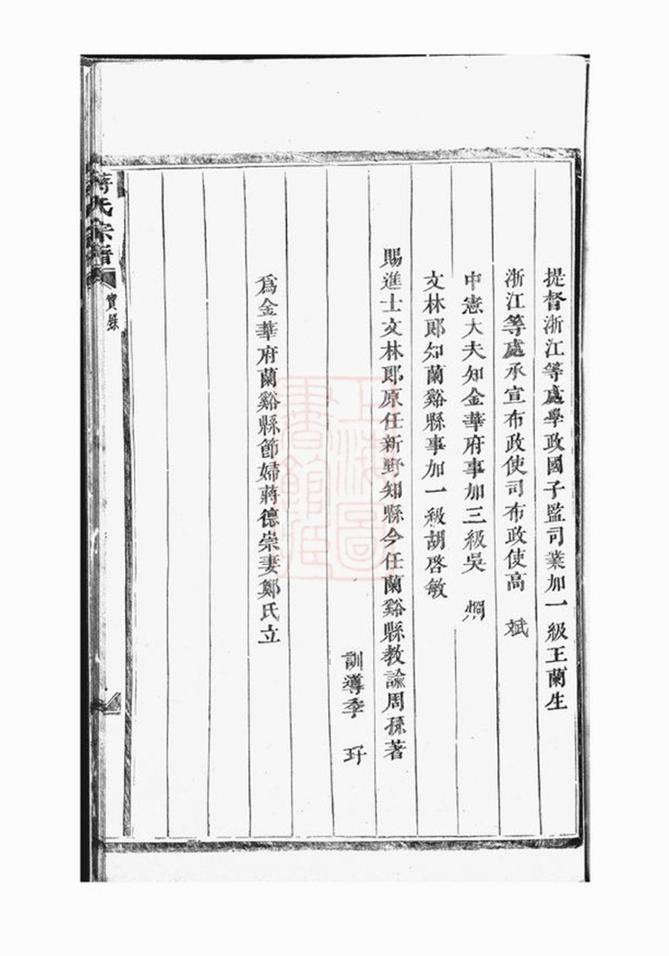 提督浙江等處學政國子監司業加一級王蘭生
浙江等處承宣布政使司布政使高 斌
中憲大夫知金華府事加三級吳
文林郎知蘭谿縣事加一級胡啓敏
賜進士文林郎原任新野知縣今任蘭谿縣教諭周孫著
訓導季 玗
爲金華府蘭谿縣節婦蔣德崇妻鄭氏立
蔣氏宗譜
實錄
上海圖書館藏